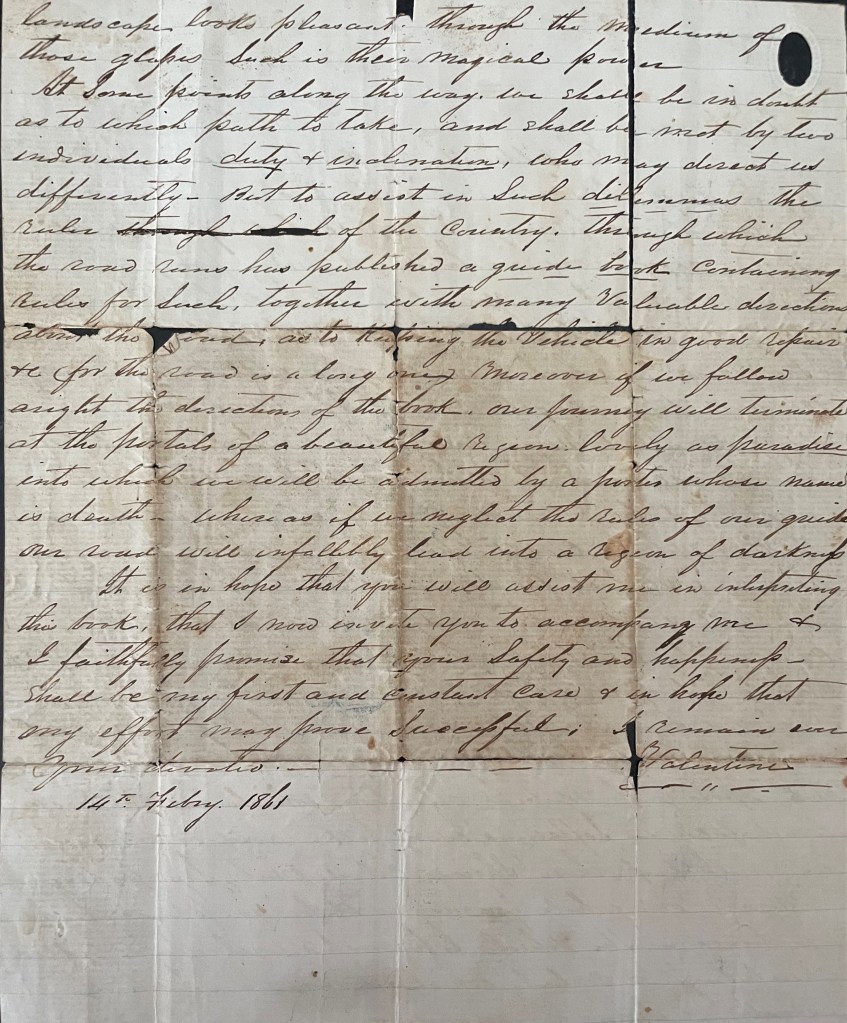 landscape looks pleasant. through the medium of
those glasses Such is their magical power
At Some points along the way. we shall be in doubt
as to which path to take, and shall be met by two
individuals duty & inclination, who may direct us
differently - But to assist in Such dilemmas the
ruler through which of the Country. through which
the road runs has published a guide book containing
rules for Such, together with many Valuable directions
about the road, as to keeping the Vehicle in good repair
&c (for the road is a long one) Moreover if we follow
aright the directions of the book. our journey will terminate
at the portals of a beautiful region. lovely as paradise
into which we will be admitted by a porter whose name
is death - where as if we neglect the rules of our guide
our road will infallibly lead into a region of darkness
It is in hope that you will assist me in interpreting
this book, that I now invite you to accompany me &
I faithfully promise that your Safety and happiness -
shall be my first and constant care & in hope that
my effort may prove Successful; I remain ever
Your devoted - Valentine
14th Febry. 1861